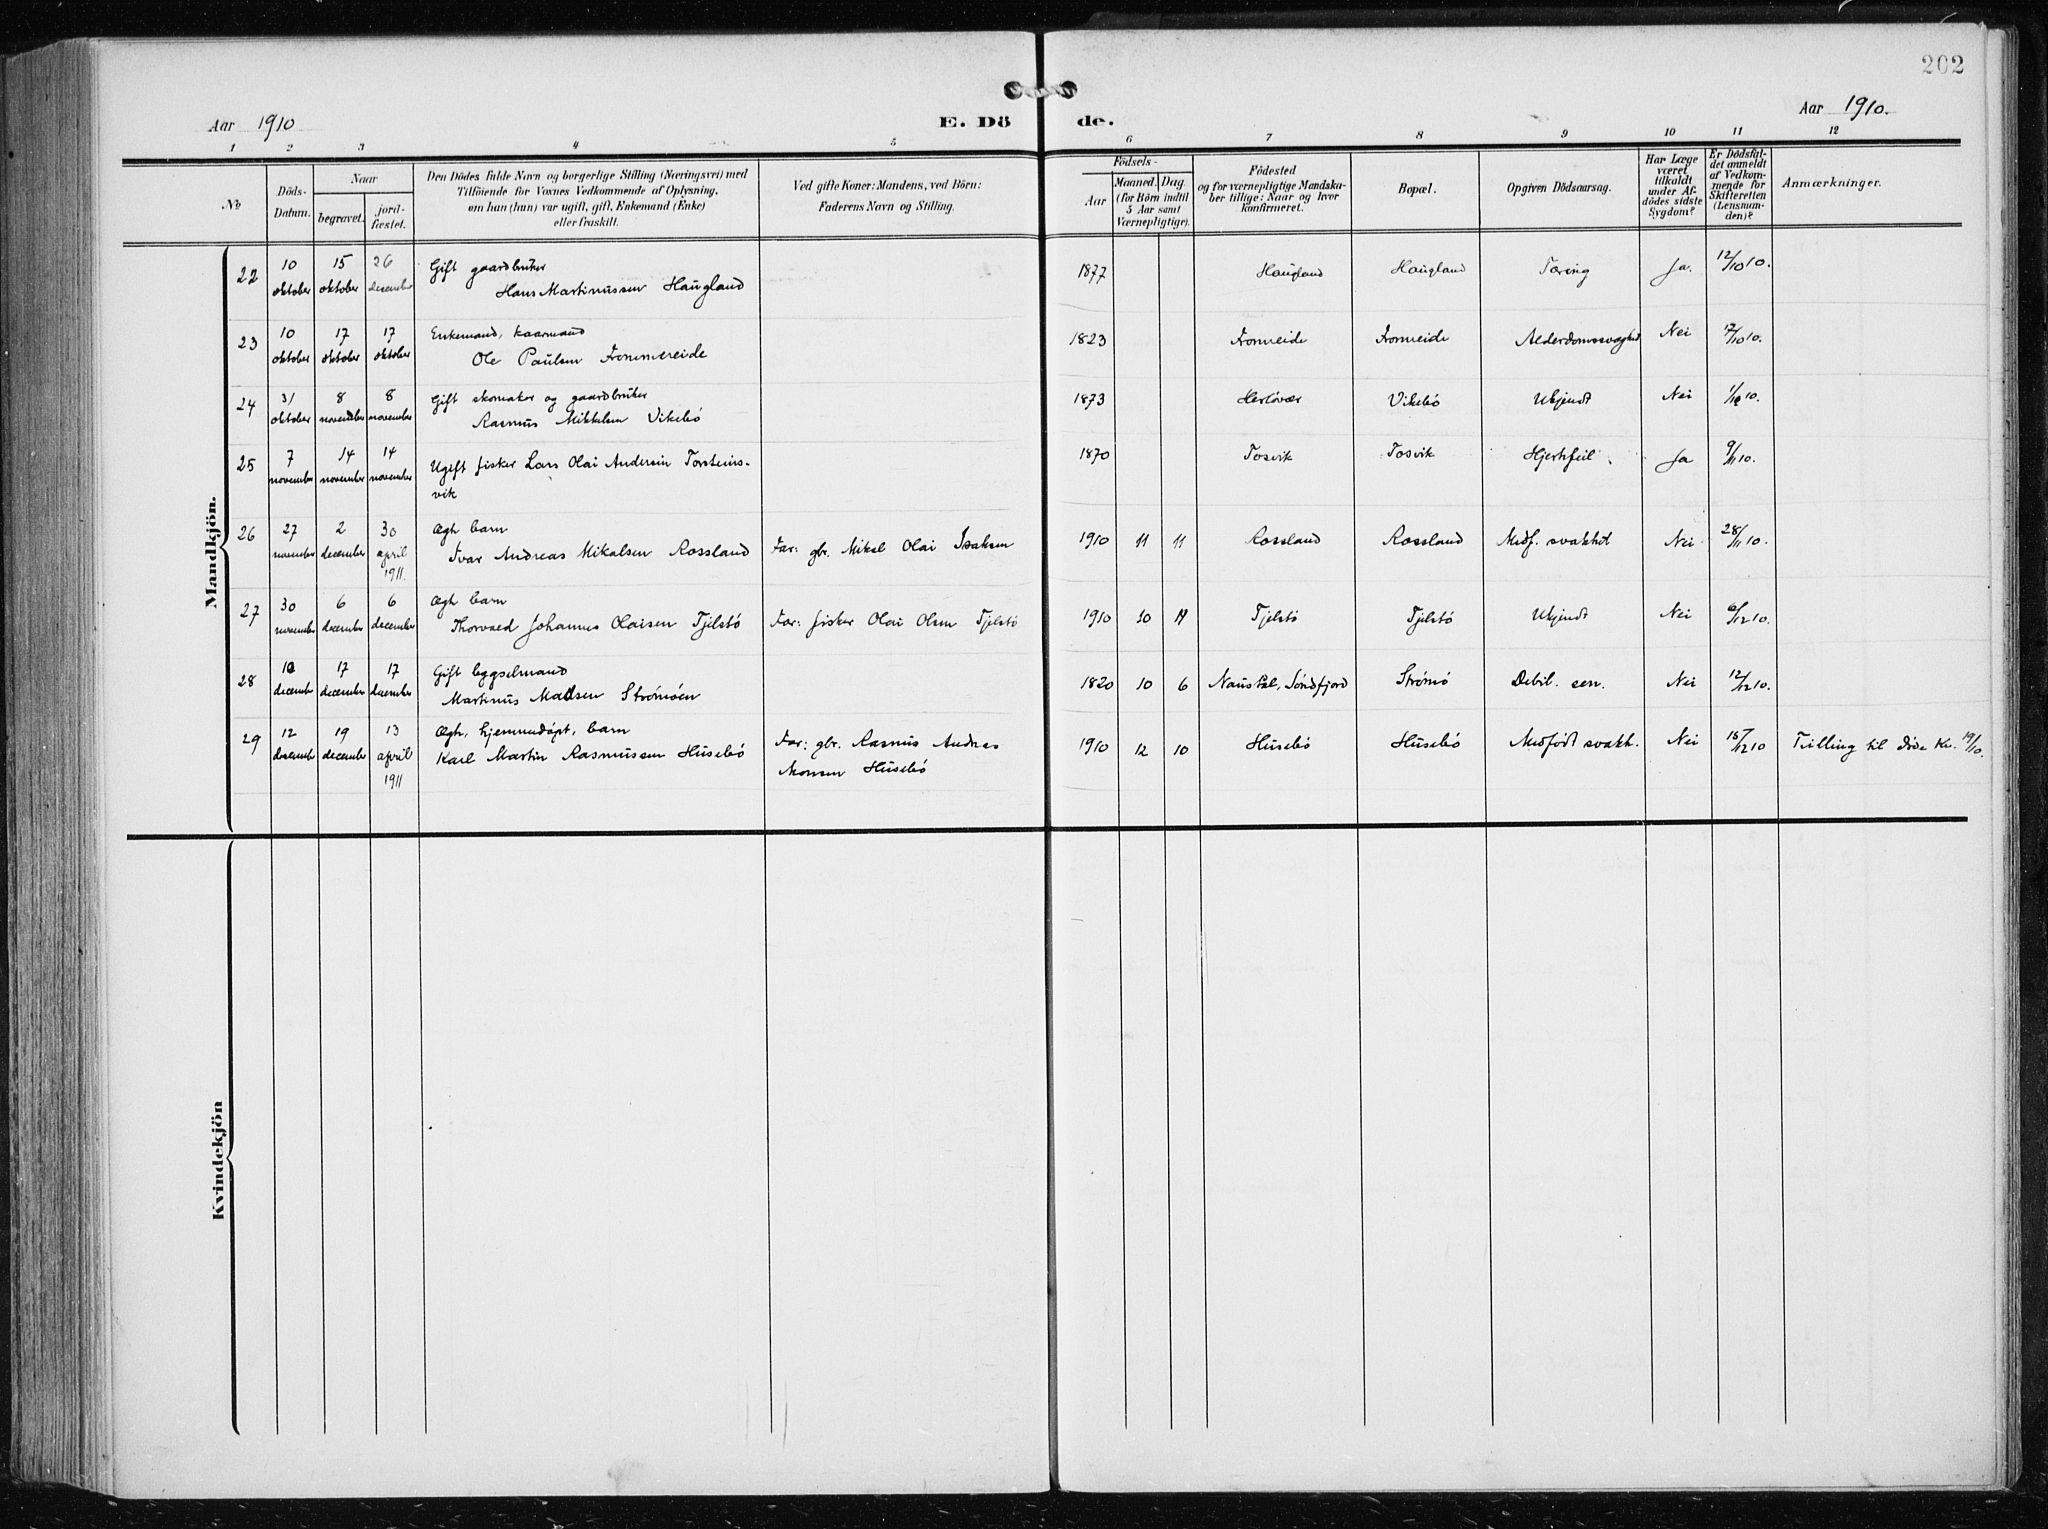 202
Aar 1910
E. Dö de.
Aar 1910.
1 2 3 4 5 6 7 8 9 10 11 12
No
Döds-
Datum.
Naar
begravet.
jord-
fæstet.
Den Dödes fulde Navn og borgerlige Stilling (Næringsvei) med
Tilföiende for Voxnes Vedkommende af Oplysning,
om han (hun) var ugift, gift, Enkemand (Enke)
eller fraskilt.
Ved gifte Koner: Mandens, ved Börn:
Faderens Navn og Stilling.
Födsels-
Aar
Maaned. Dag.
(for Börn indtil
5 Aar samt
Værnepligtige).
Födested
og for værnepligtige Mandska-
ber tillige: Naar og hvor
konfirmeret.
Bopæl.
Opgiven Dödsaarsag.
Har Læge
været
tilkaldt
under Af-
dödes sidste
Sygdom?
Er Dödsfal-
det anmeldt
af Vedkom-
mende for
Skifteretten
(Lensman-
den)?
Anmærkninger.
Mandkjön.
22 10 oktober 15 oktober 26 december Gift gaardbruker
Hans Martinussen Haugland 1877 Haugland Haugland Tæring Ja. 12/10 10.
23 10 oktober 17 oktober 17 oktober Enkemand, kaarmand
Ole Paulsen Frommereide 1823 Fromreide Fromreide Alderdomssvaghed Nei 17/10 10.
24 31 oktober 8 november 8 november Gift skomaker og gaardbruker
Rasmus Mikkelsen Vikebö 1873 Herlövær Vikebö Ukjendt Nei 10.
25 7 november 14 november 14 november Ugift fisker Lars Olai Andersen Torsteins-
vik 1870 Tosvik Tosvik Hjertfeil. Ja 9/11 10.
26 27 november 2 december 30 april 1911. Ægh barn
Ivar Andreas Mikalsen Rossland Far: gbr. Mikal Olai Isaksen 1910 11 11 Rossland Rossland Medf. svakhet Nei 28/11 10.
27 30 november 6 december 6 december Ægh barn
Thorvald Johannes Olaisen Tjelstö Far: fisker Olai Olsen Tjelstö 1910 10 Tjelstö Tjelstö Ukjendt Nei 6/12 10.
28 december 17 december 17 december Gift løgselmand
Martinus Madsen Strömöen 1820 10 6 Naustdal, Söndfjord Strömö Debil. sen. Nei 12/12 10.
29 12 december 19 december 13 april 1911 Ægh, hjemmedöpt, barn
Karl Martin Rasmussen Husebö Far: gbr. Rasmus Andreas
Monsen Husebö 1910 12 10 Husebö Husebö Medfödt svakh. Nei 15/12 10 Tvilling til döde Kv. 19/10.
Kvindekjön